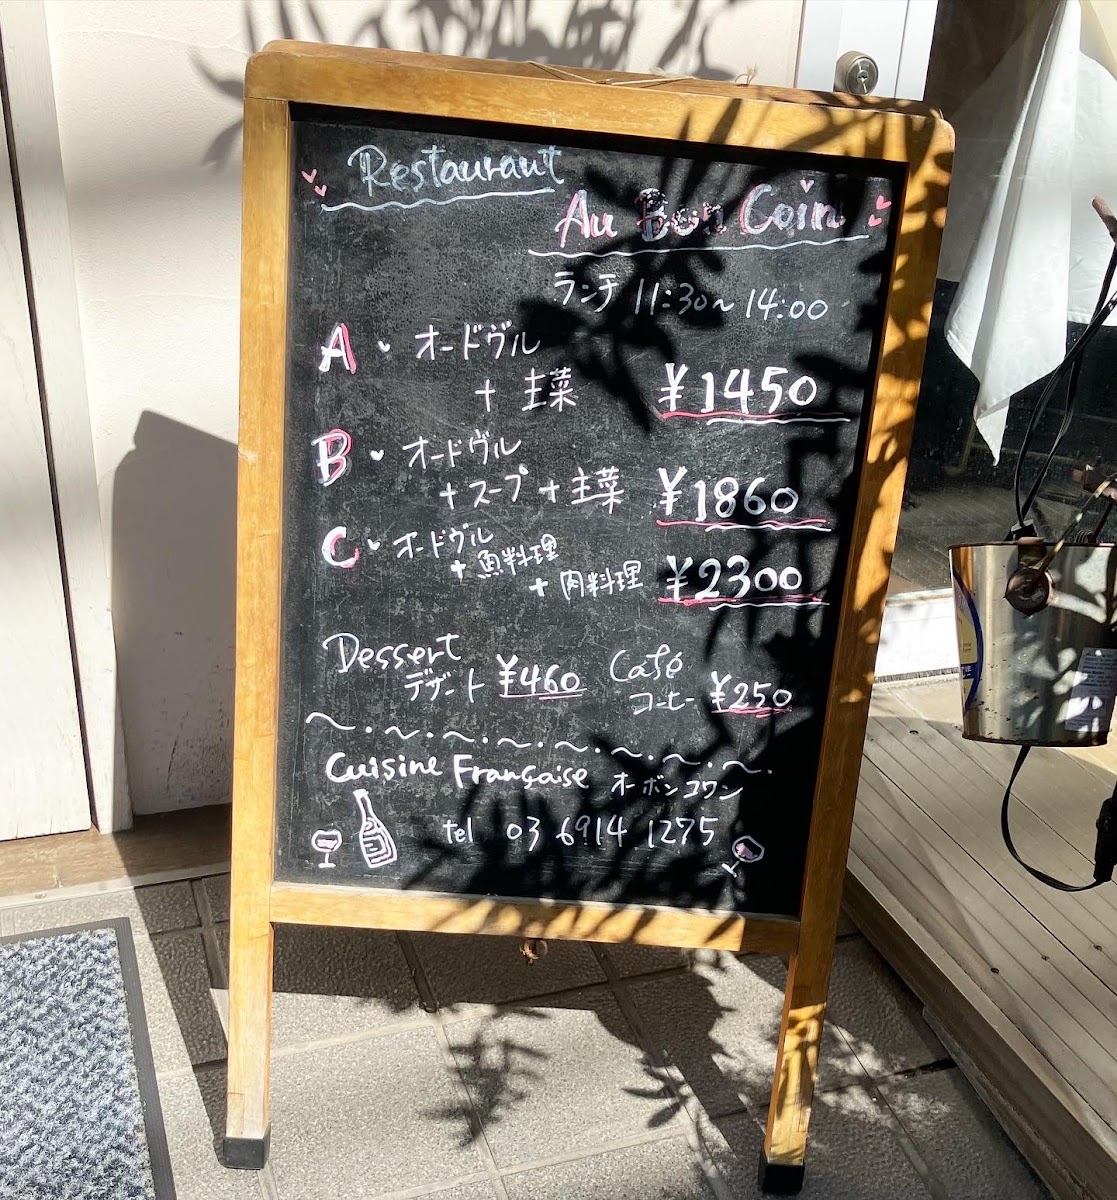 Restaurant
Au Bon Coin
ランチ 11:30~14:00
A・オードヴル
+主菜 ¥1450
B・オードヴル
+スープ+主菜 ¥1860
C・オードヴル
+魚料理
+肉料理 ¥2300
Dessert
デザート ¥460
Café
コーヒー ¥250
Cuisine Française オーボンコワン
tel 03 6914 1275